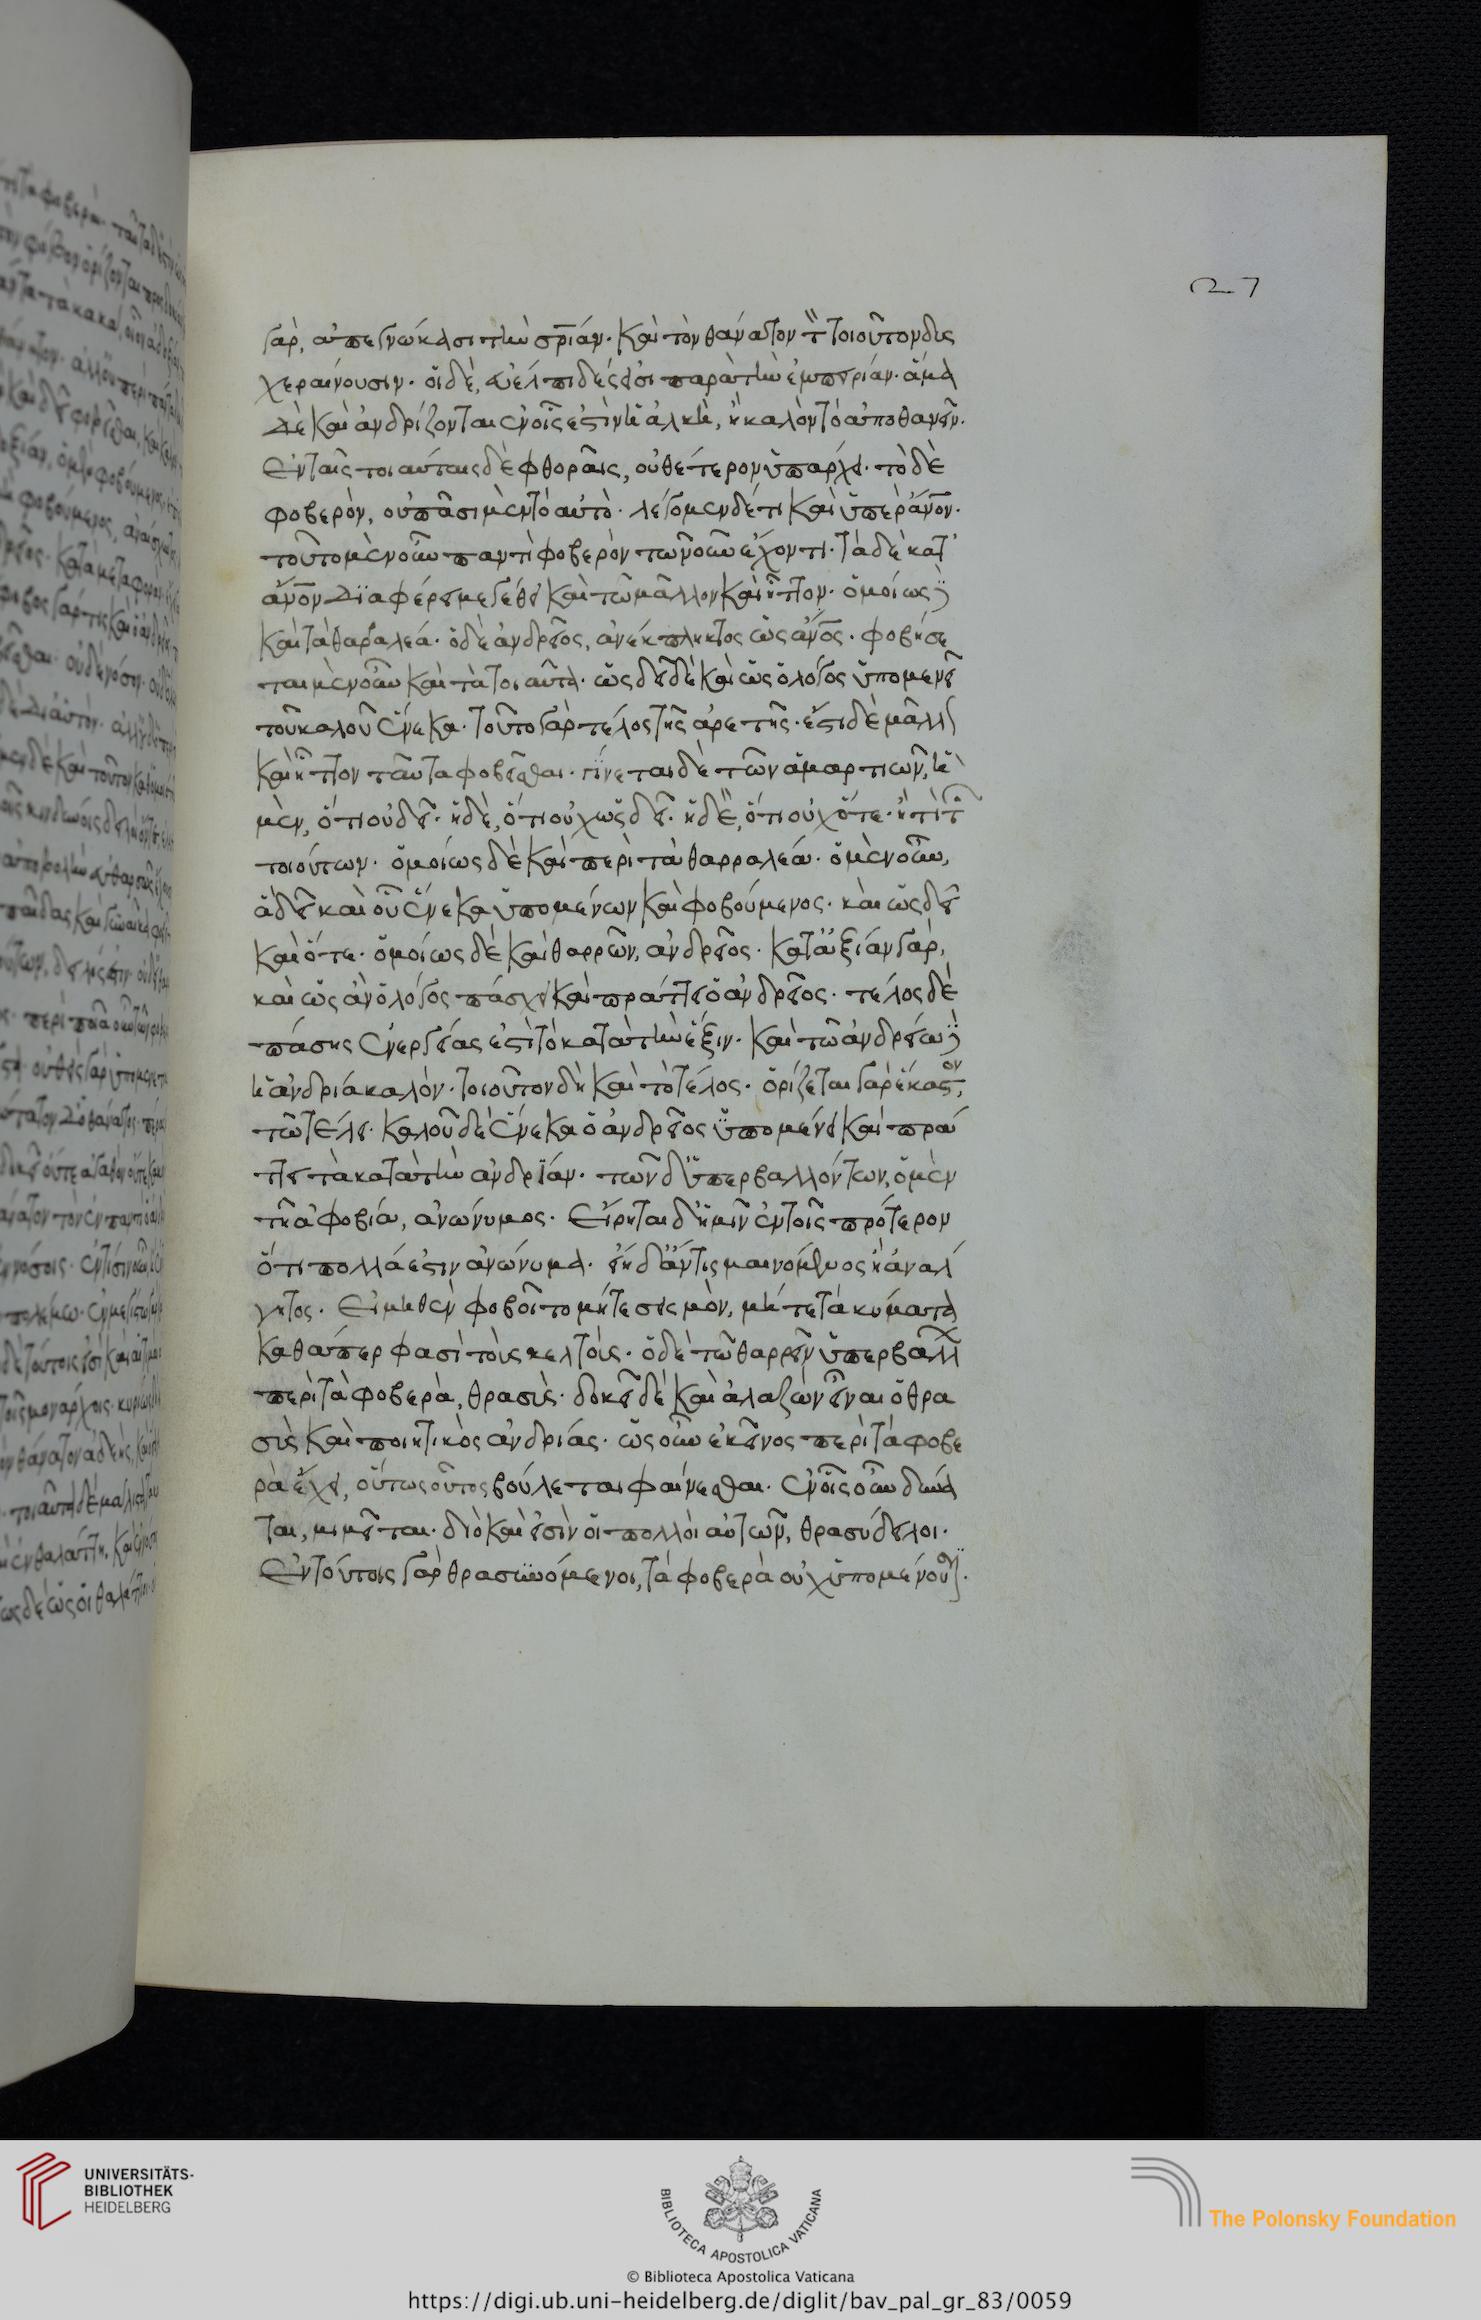 27
γὰρ, ἀπεγνώκασι τὴν σρίαν· καὶ τὸν θάνατον τὸν τοιοῦτον δυς
χεραίνουσιν· οἱ δὲ, εὐέλπιδές εἰσι παρὰ τὴν ἐμπειρίαν· ἅμα
δὲ καὶ ἀνδρίζονται ἐν οἷς ἐστὶν ἡ ἀλκὴ, ἢ καλὸν τὸ ἀποθανεῖν·
Ἐν ταῖς τοιαύταις δὲ φθοραῖς, οὐθέτερον ὑπάρχει· τὸ δὲ
φοβερὸν, οὐ πᾶσι μὲν τὸ αὐτὸ· λέγομεν δέ τι καὶ ὑπὲρ ἄνον·
τοῦτο μὲν οὖν παντὶ φοβερὸν τῶ νοῦν ἔχοντι· τὰ δὲ κατ'
ἄνον διαφέρει μεγέθει καὶ τῶ μᾶλλον καὶ ἧττον· ὁμοίως δὲ
καὶ τὰ θαραλέα· ὁ δὲ ἀνδρεῖος, ἀνέκπληκτος ὡς ἄνος· φοβήσε
ται μὲν οὖν καὶ τὰ τοιαῦτα· ὡς δεῖ δὲ καὶ ὡς ὁ λόγος ὑπομενεῖ
τοῦ καλοῦ ἕνεκα· τοῦτο γὰρ τέλος τῆς ἀρετῆς· ἔστι δὲ μᾶλλ
καὶ ἧττον ταῦτα φοβεῖσθαι· γίνεται δὲ τῶν ἁμαρτιῶν, ἡ
μὲν, ὅτι οὐ δεῖ· ἡ δὲ, ὅτι οὐχ ὡς δεῖ· ἡ δὲ, ὅτι οὐχ ὅτε· ἤ τι τῶν
τοιούτων· ὁμοίως δὲ καὶ περὶ τὰ θαρραλέα· ὁ μὲν οὖν,
ἃ δεῖ καὶ οὗ ἕνεκα ὑπομένων καὶ φοβούμενος· καὶ ὡς δεῖ
καὶ ὅτε· ὁμοίως δὲ καὶ θαρρῶν, ἀνδρεῖος· κατ' ἀξίαν γὰρ,
καὶ ὡς ἂν ὁ λόγος πάσχει καὶ πράττει ὁ ἀνδρεῖος· τέλος δὲ
πάσης ἐνεργείας ἐστὶ τὸ κατὰ τὴν ἕξιν· καὶ τῶ ἀνδρείω δὲ
ἡ ἀνδρία καλόν· τοιοῦτον δὴ καὶ τὸ τέλος· ὁρίζεται γὰρ ἕκαστον,
τῶ τέλει· καλοῦ δὲ ἕνεκα ὁ ἀνδρεῖος ὑπομένει καὶ πρά
ττει τὰ κατὰ τὴν ἀνδρίαν· τῶν δ' ὑπερβαλλόντων, ὁ μὲν
τῆ ἀφοβία, ἀνώνυμος· Εἴρηται δ' ἡμῖν ἐν τοῖς πρότερον
ὅτι πολλά ἐστιν ἀνώνυμα· εἴη δ' ἄν τις μαινόμενος ἢ ἀνάλ
γητος· Εἰ μηθὲν φοβοῖτο μήτε σεισμὸν, μήτε τὰ κύματα
καθάπερ φασὶ τοὺς κελτούς· ὁ δὲ τῶ θαρρεῖν ὑπερβάλλων
περὶ τὰ φοβερὰ, θρασύς· δοκεῖ δὲ καὶ ἀλαζὼν εἶναι ὁ θρα
σὺς καὶ ποιητικὸς ἀνδρίας· ὡς οὖν ἐκεῖνος περὶ τὰ φοβε
ρὰ ἔχει, οὕτως οὗτος βούλεται φαίνεσθαι· ἐν οἷς οὖν δύνα
ται, μιμεῖται· διὸ καὶ εἰσὶν οἱ πολλοὶ αὐτῶν, θρασύδειλοι·
Ἐν τούτοις γὰρ θρασυνόμενοι, τὰ φοβερὰ οὐχ ὑπομένουσι·
UNIVERSITÄTS-
BIBLIOTHEK
HEIDELBERG
BIBLIOTECA APOSTOLICA VATICANA
The Polonsky Foundation
© Biblioteca Apostolica Vaticana
https://digi.ub.uni-heidelberg.de/diglit/bav_pal_gr_83/0059